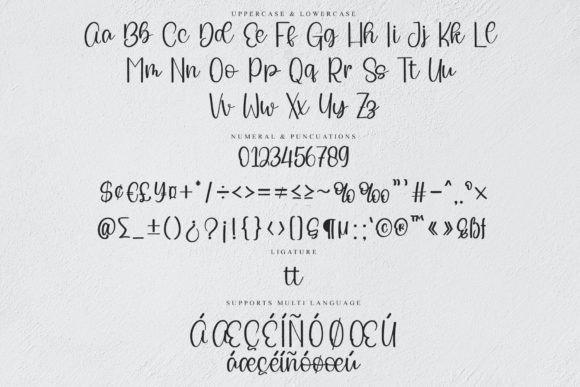 UPPERCASE & LOWERCASE
Aa Bb Cc Dd Ee Ff Gg Hh Ii Jj Kk Ll
Mm Nn Oo Pp Qq Rr Ss Tt Uu
Vv Ww Xx Uy Zz
NUMERAL & PUNCUATIONS
0123456789
$¢€£¥¤+*/÷<>=≠≤≥~%‰"'#-^,.°×
@∑_±()¿?¡!{}‹›[]§¶µ:;'©®™«»
LIGATURE
tt
SUPPORTS MULTI LANGUAGE
ÁÆÇÉÍÑÓØŒÚ
áæçéíñóøœú